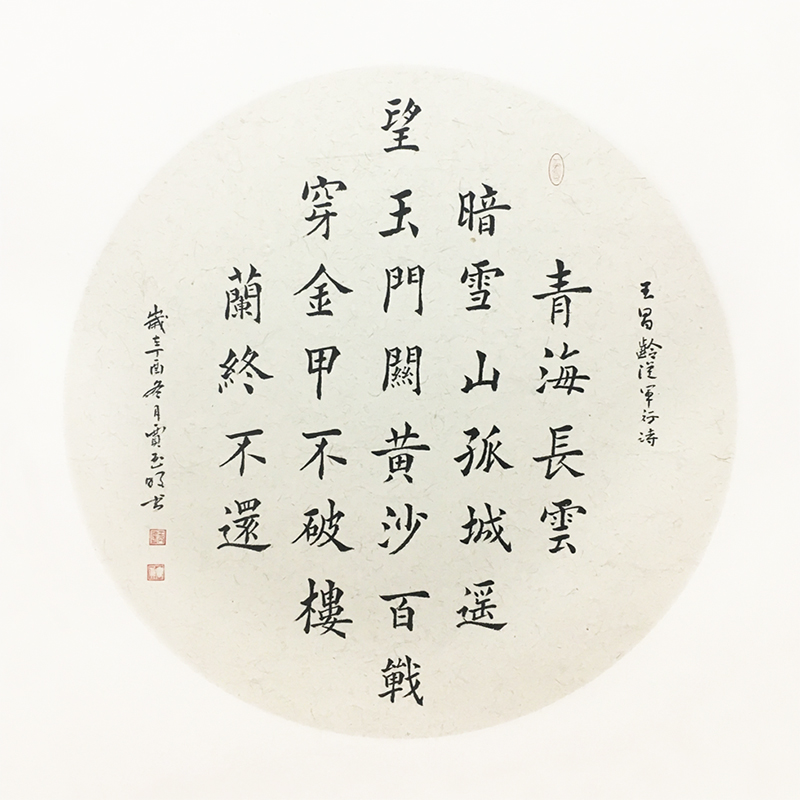 王昌齡從軍行詩
青海長雲
暗雪山孤城遥
望玉門關黄沙百戰
穿金甲不破樓
蘭終不還
歲辛酉冬月賈玉明书